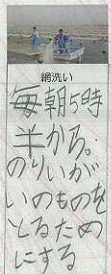 網洗い
毎朝5時
半から。
のりいがい
のものを
とるため
にする